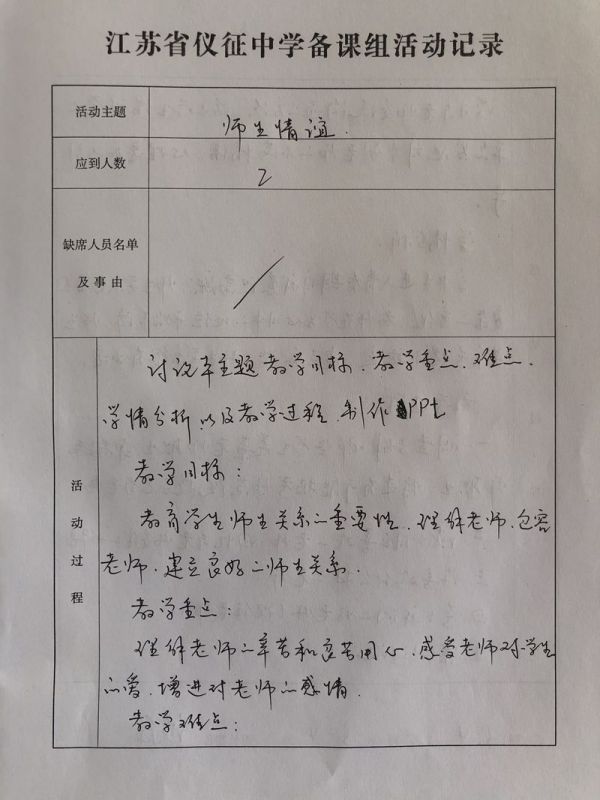 江苏省仪征中学备课组活动记录
活动主题
师生情谊.
应到人数
2
缺席人员名单
及事由
活动过程
讨论本主题教学目标、教学重点、难点、
学情分析以及教学过程、制作PPt
教学目标：
教育学生师生关系的重要性、理解老师、包容
老师、建立良好的师生关系.
教学重点：
理解老师的辛苦和良苦用心、感受老师对学生
的爱、增进对老师的感情.
教学难点：